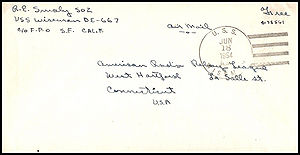 R.R. Smaly SO2
USS Wiseman DE-667
c/o F.P.O S.F. CALIF.
Air Mail
Free
U.S.S.
JUN
18
American Radio Relay League
West Hartford
La Salle St.
Connecticut
USA